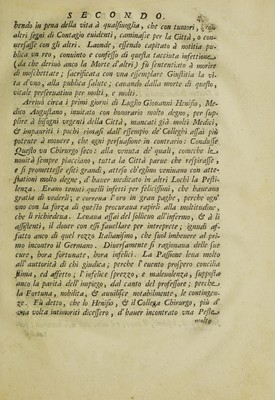 SECONDO.
bendo in pena della vita à qualsivoglia, che con tumori,
altri segni di Contagio evidenti, caminasse per la Città, o con-
versasse con gli altri. Laonde, essendo capitato à notitia pu-
blica un reo, convinto e confesso di questa tacciuta infettione,
(da che derivò anco la Morte d'altri) fù sententiato à morire
di moschettate; sacrificata con una essemplare Giustitia la vi-
ta d'uno, alla publica salute; cavando dalla morte di questo,
vitale preservatiuo per molti, e molti.
Arriuò circa i primi giorni di Luglio Giovanni Hruisio, Me-
dico Augustano, inuitato con honorario molto degno, per sup-
plire à bisogni vrgenti della Città, mancati già molti Medici,
& impauriti i pochi rimasi dall'essempio de' Colleghi assai più
potente à mouere, che ogni persuasione in contrario: Condusse
Questo un Chirurgo seco: alla venuta de' quali, comeche le
nouità sempre piacciano, tutta la Città parue che respirasse,
e si promettesse esiti grandi, atteso ch'eglino veniuano con atte-
stationi molto degne, d'hauer medicato in altri Luochi la Peste
lenza. Erano tenuti quelli infetti per felicissimi, che haueuano
gratia di vederli; e correua l'oro in gran paghe, perche ogn'
uno con la forza di quello procuraua rapirli alla moltitudine,
che li richiedeua. Leuaua assai del sollieuo all'infermo, & à li
assistenti, il douer con essi fauellare per interprete; ignudi af-
fatto anco di quel rozzo Italianismo, che suol imbeuere al pri-
mo incontro il Germano. Diuersamente si ragionaua delle sue
cure, hora fortunate, hora infelici. La Passione leua molto
all'autorità di chi giudica; perche l'euento prospero concilia
stima, ed affetto; l'infelice sprezzo, e maleuolenza, supposta
anco la parità dell'impiego, dal canto del professore; perche
la Fortuna, nobilita, & auuilisce notabilmente, le contingen-
ze. Fù detto, che lo Hruisio, & il Collega Chirurgo, più d'
una volta intimoriti dicessero, d'hauer incontrato vna Peste
molto